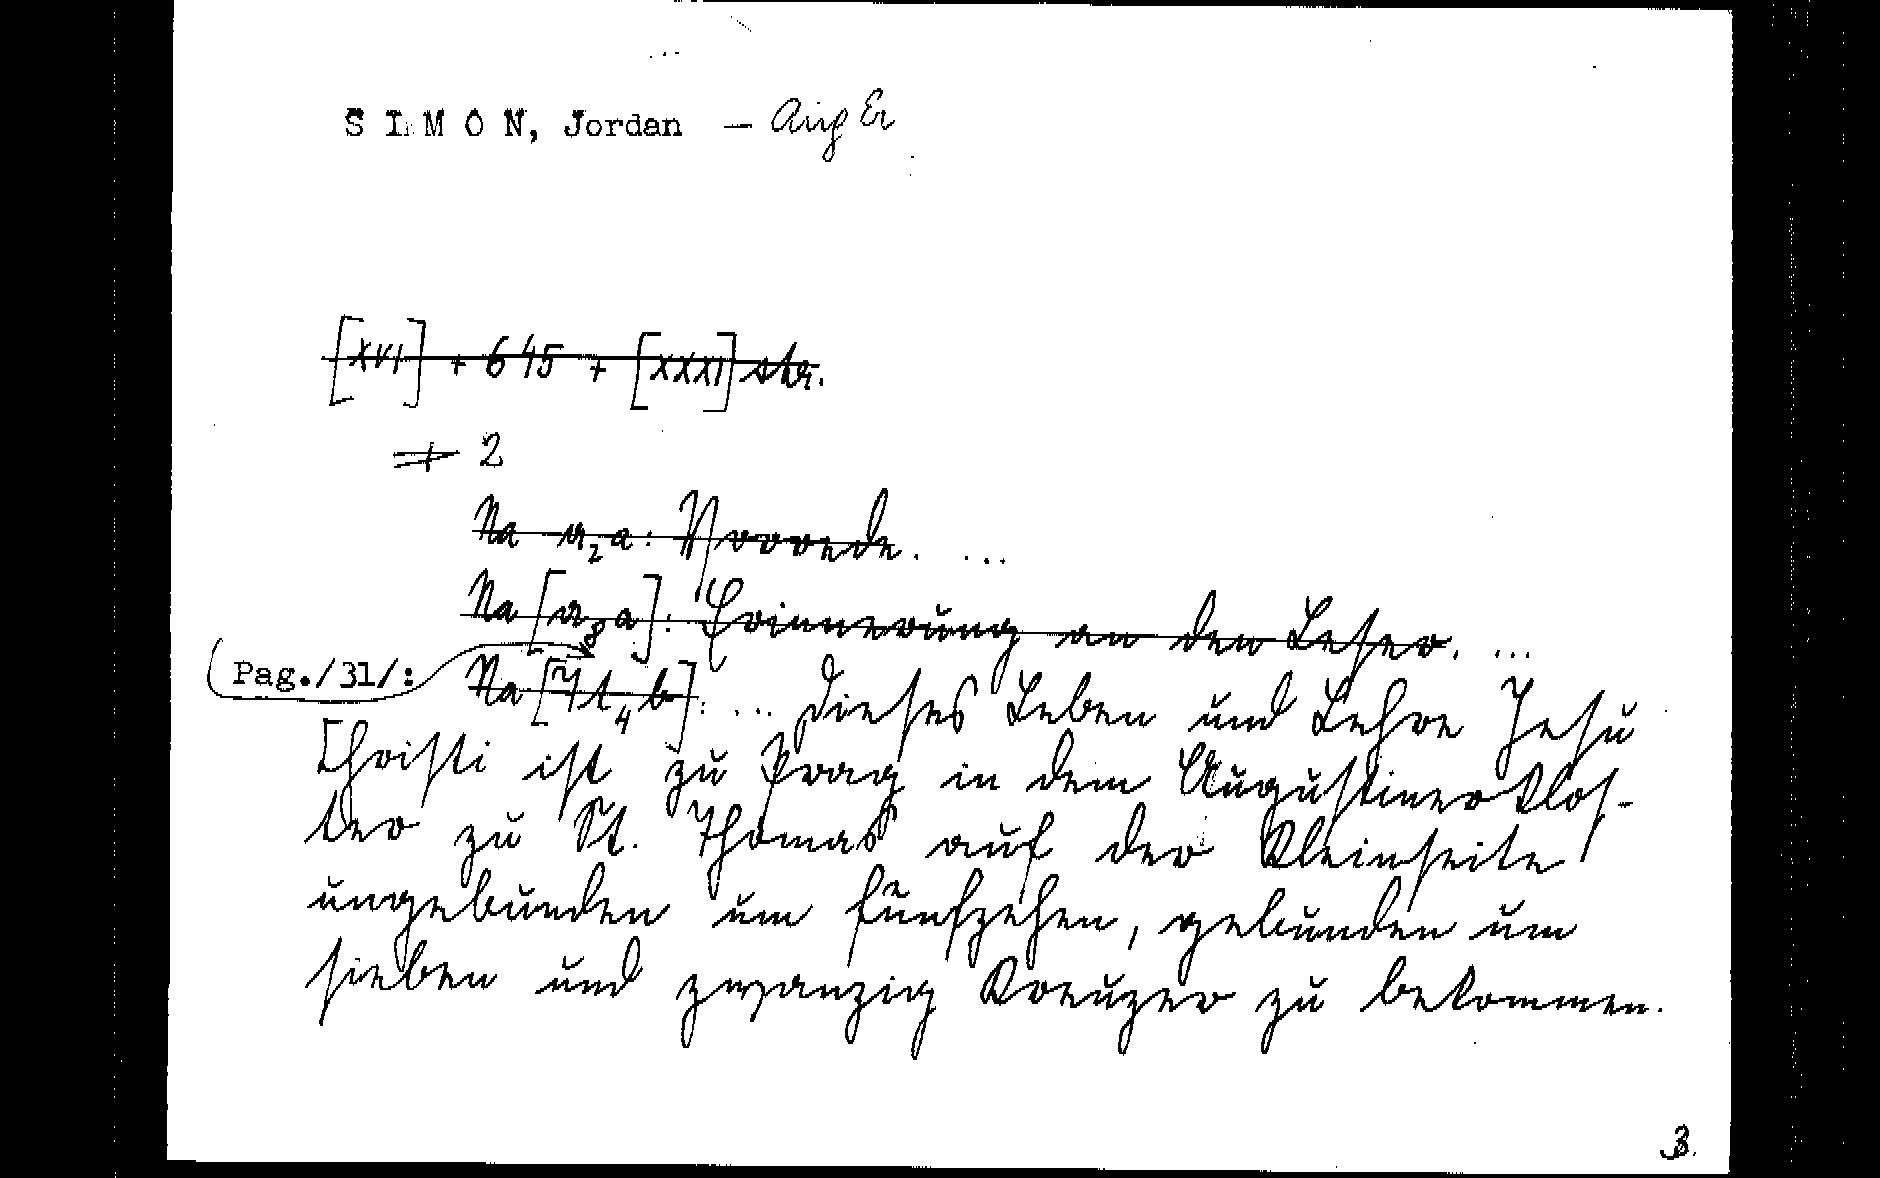 S I M O N, Jordan — Aug Er
[XVI] + 645 + [XXXI] str.
2
Na a2a: Vorrede. ...
Na [a8a]: Erinnerung an den Leser. ...
Pag./31/:
Na [Tt4b]: ... Dieses Leben und Lehre Jesu
Christi ist zu Prag in dem Augustinerklos-
ter zu St. Thomas auf der Kleinseite
ungebunden um fünfzehen, gebunden um
sieben und zwanzig Kreuzer zu bekommen.
3.